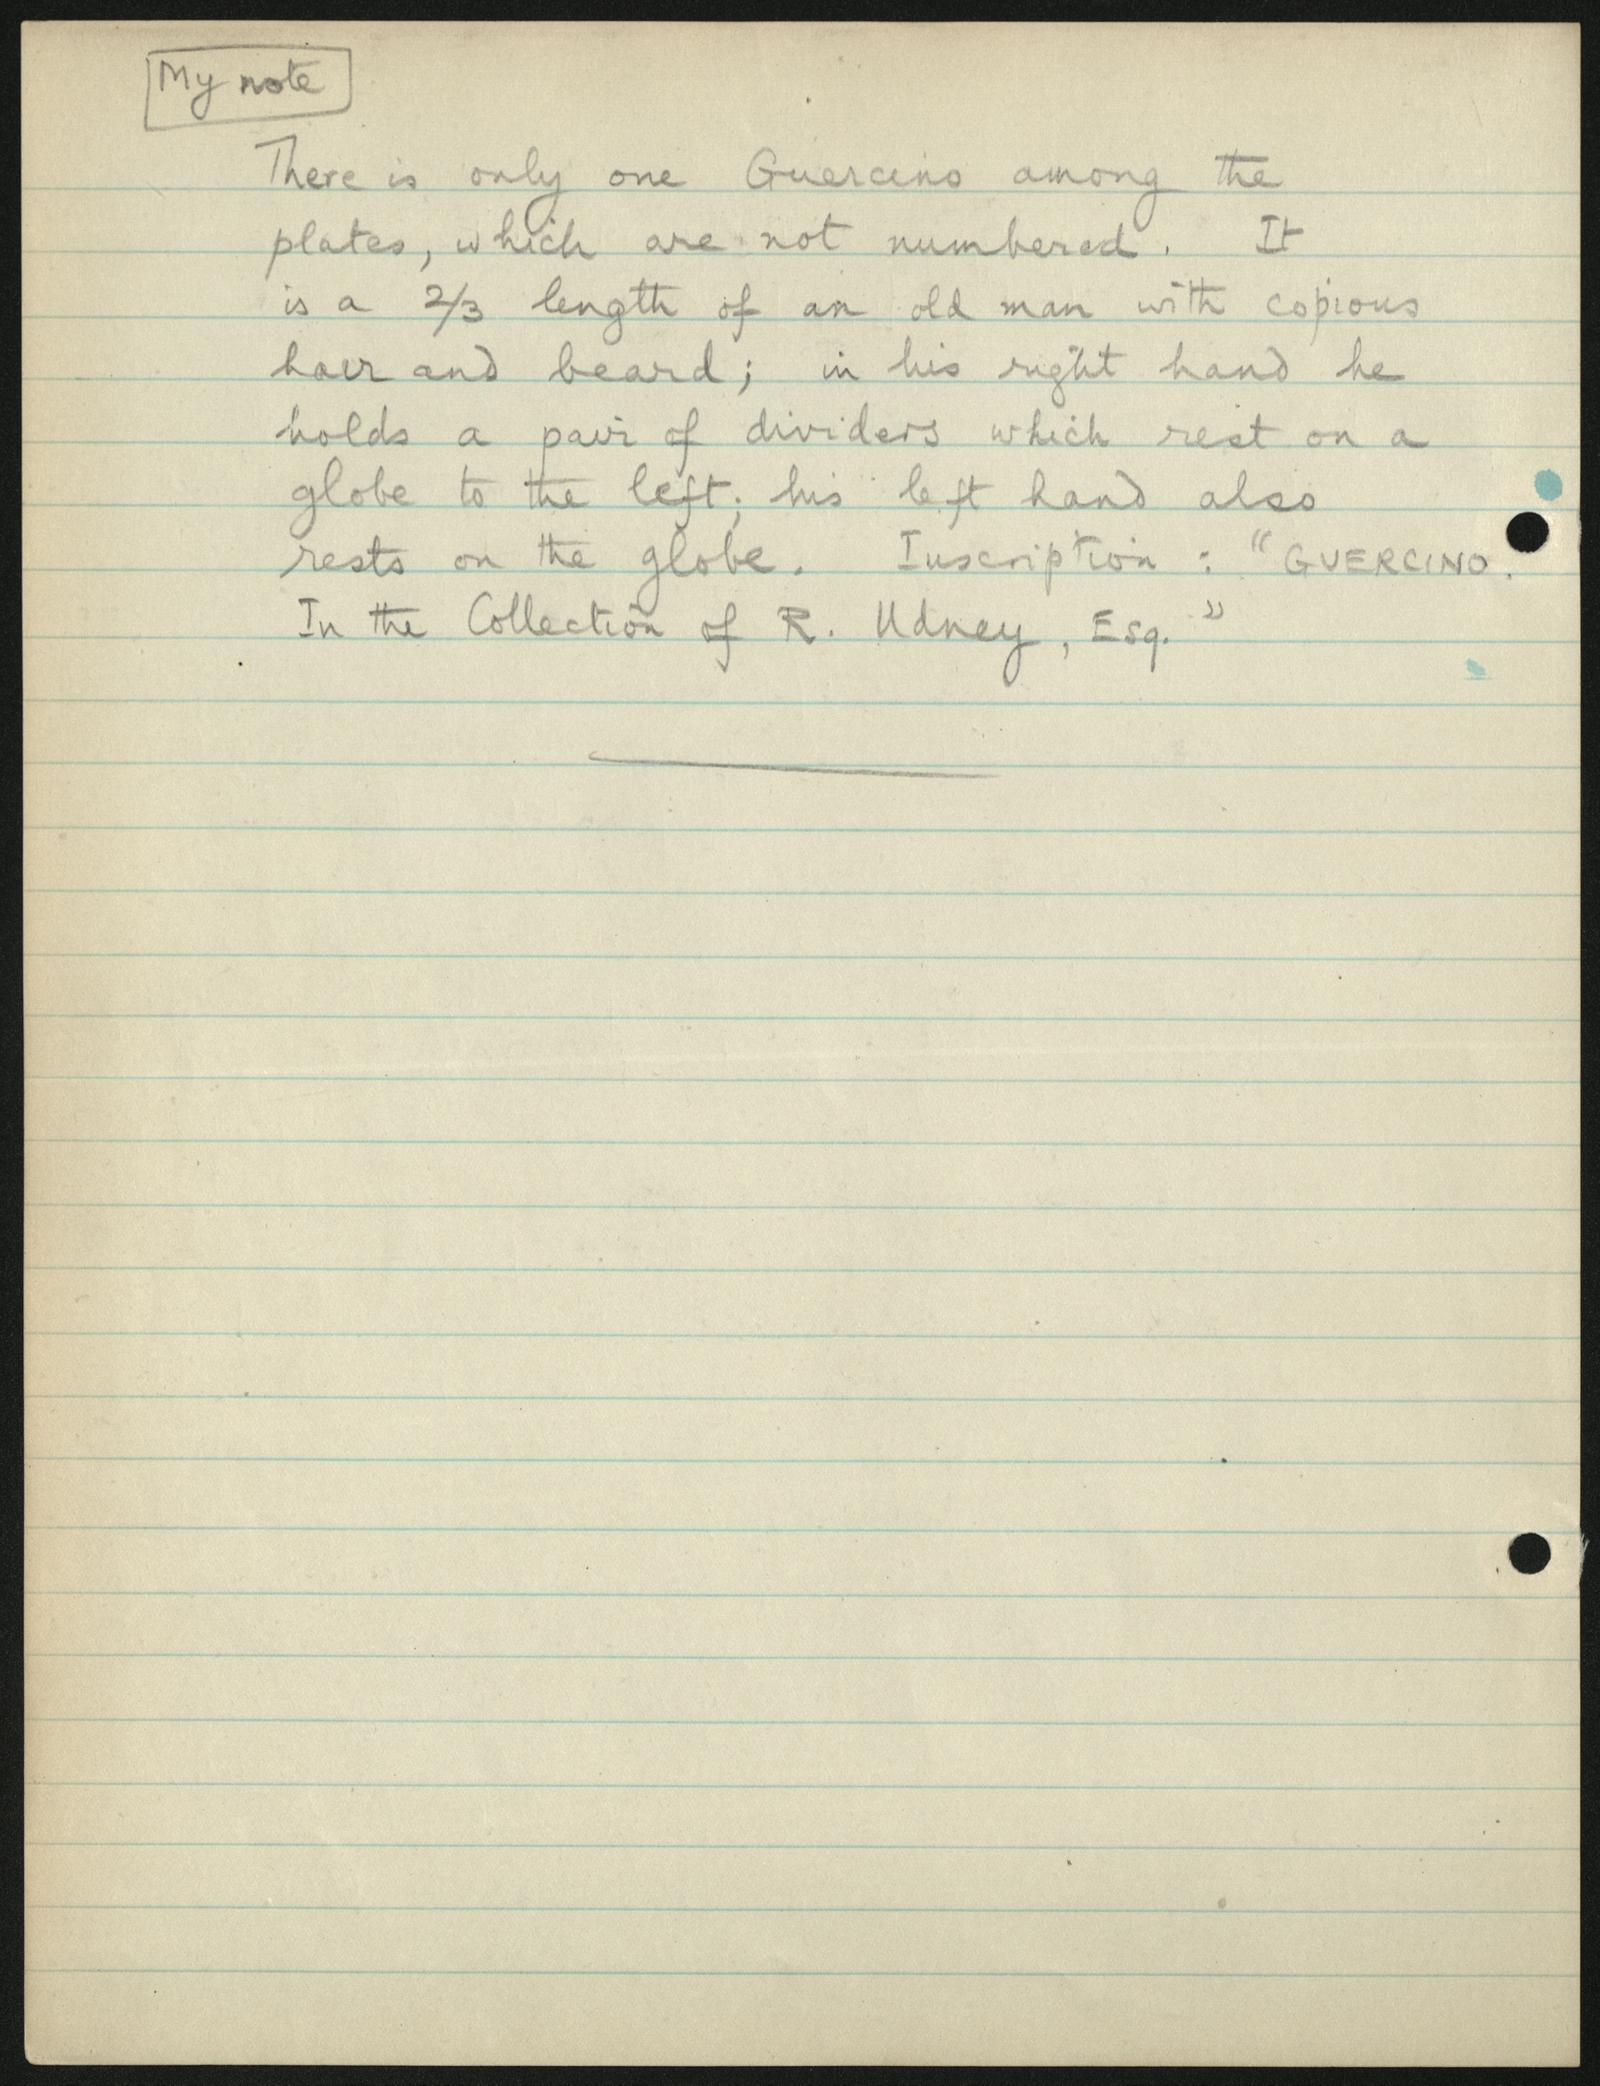 My note
There is only one Guercino among the
plates, which are not numbered. It
is a 2/3 length of an old man with copious
hair and beard; in his right hand he
holds a pair of dividers which rest on a
globe to the left; his left hand also
rests on the globe. Inscription : "GUERCINO.
In the Collection of R. Udney, Esq."